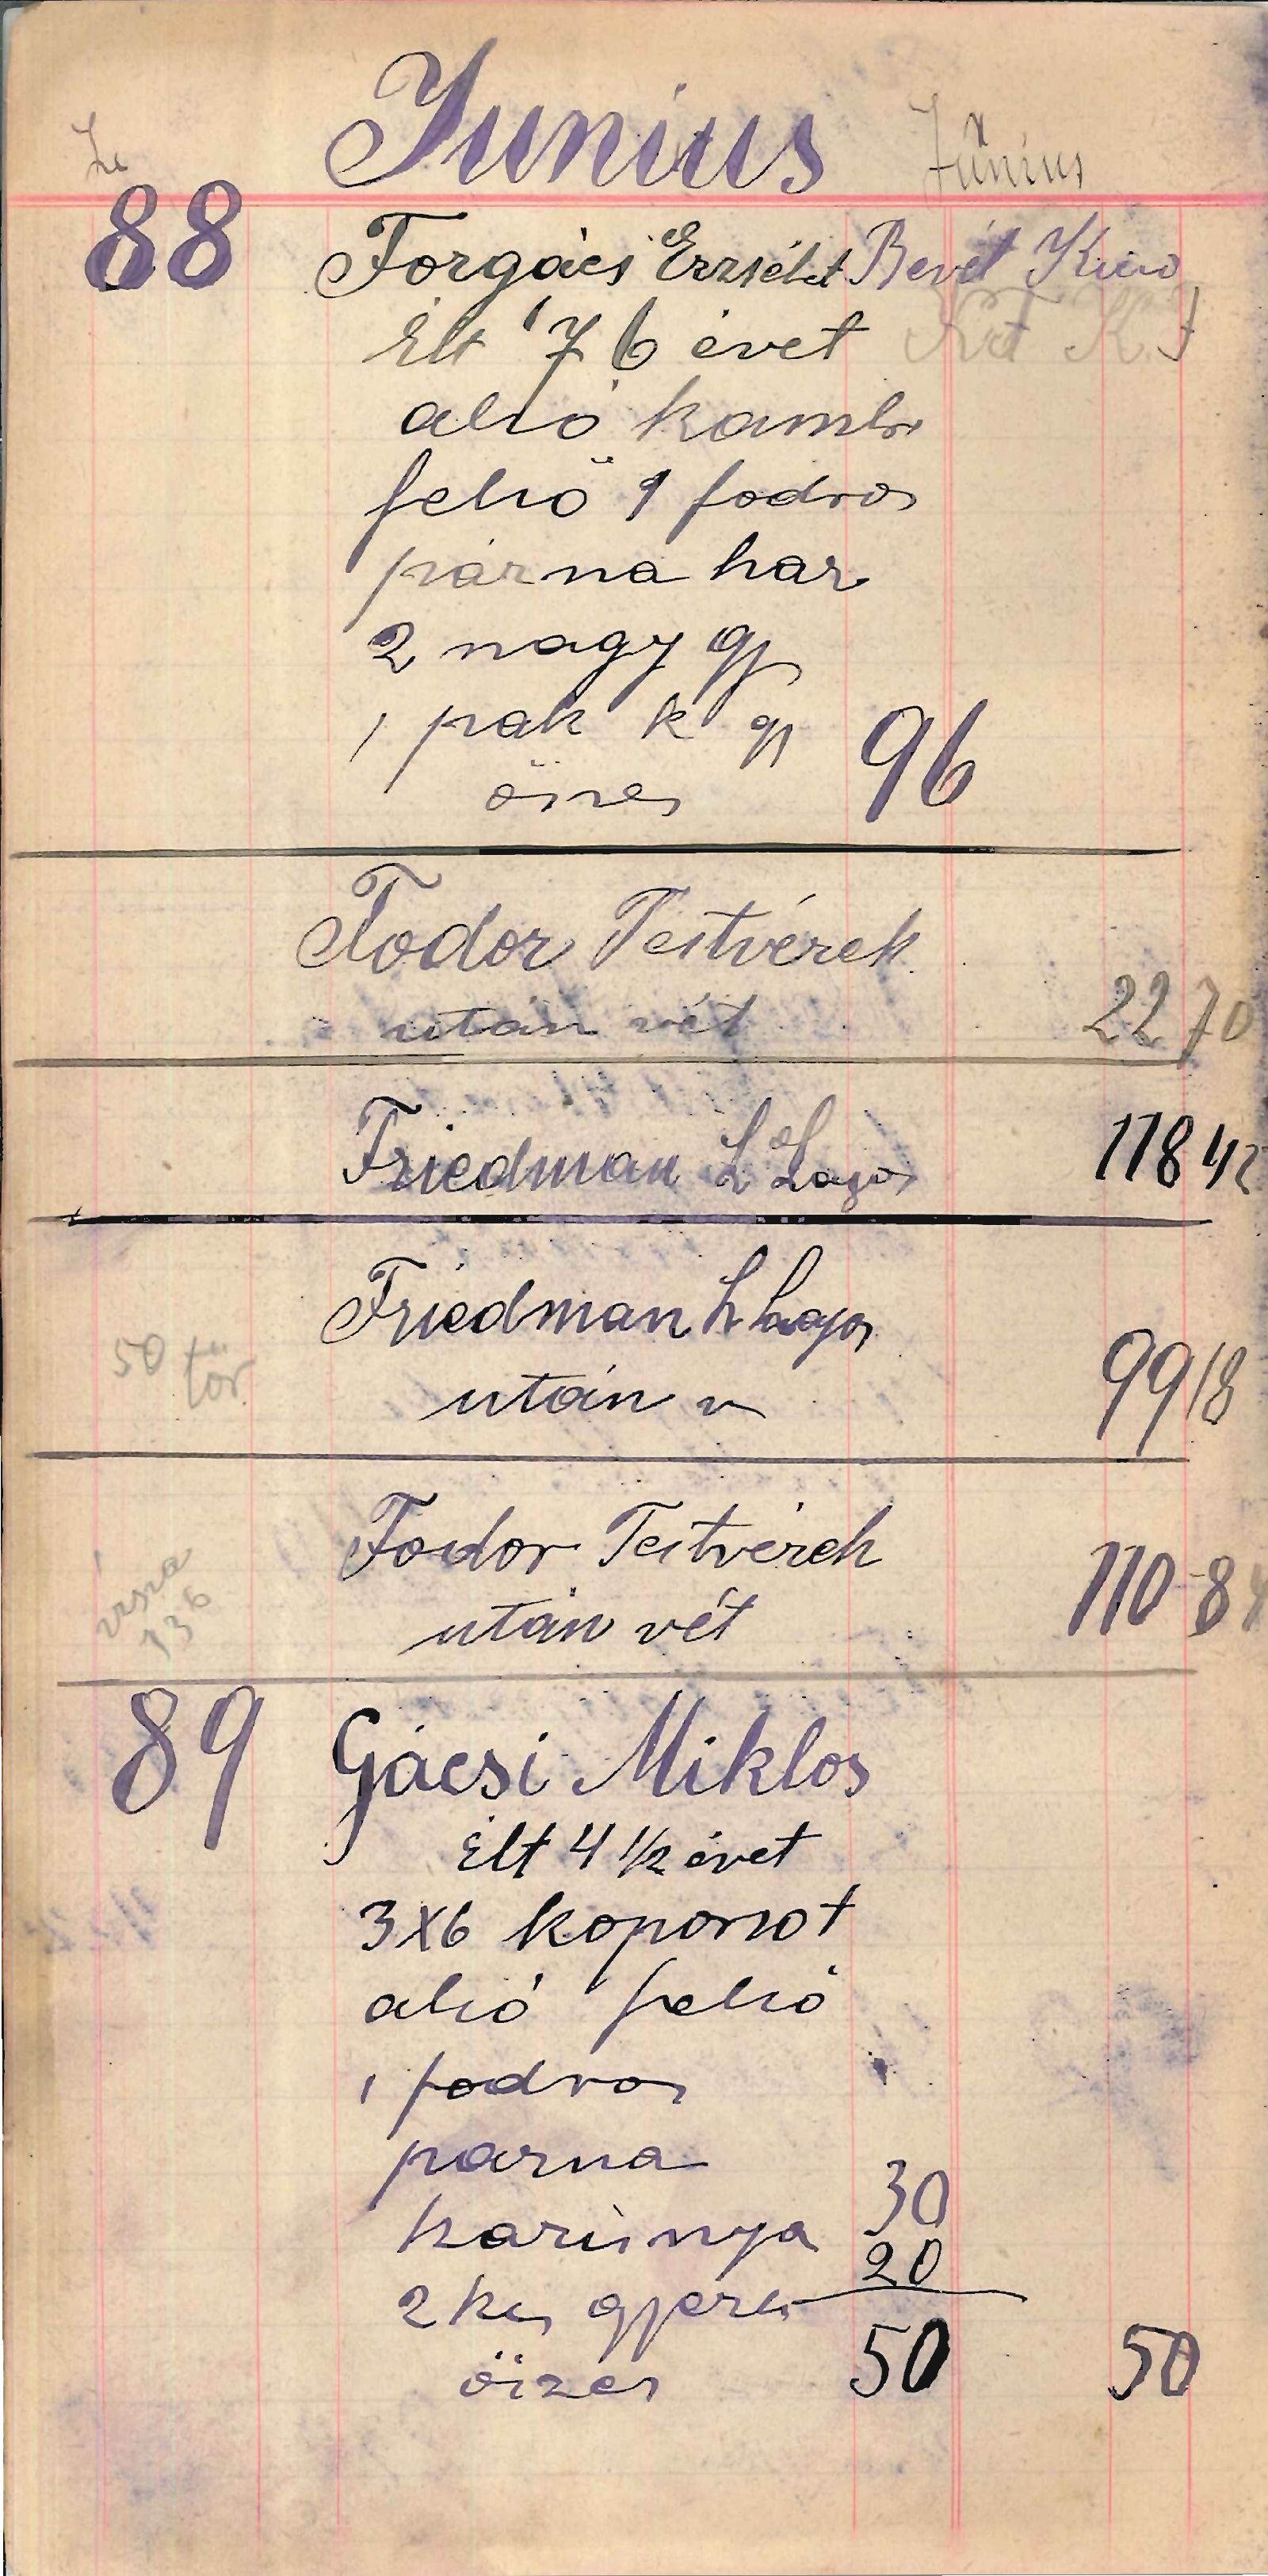 Junius Június
88 Forgács Erzsébet Bevét Kiad
Élt 76 évet
alsó kambr
felső 1 fodros
párna har
2 nagy gy
1 pak k gy 96
öszes
Fodor Testvérek
után vét 22 70
Friedman L Lajos 118 42
Friedman L Lajos
50 tör
után v 99 18
Fodor Testvérek
után vét 110 84
136
89 Gácsi Miklos
Élt 4 1/2 évet
3x6 koporsot
alsó felső
1 fodros
parna
harisnya 30
2 kis gyerts 20
öszes 50 50